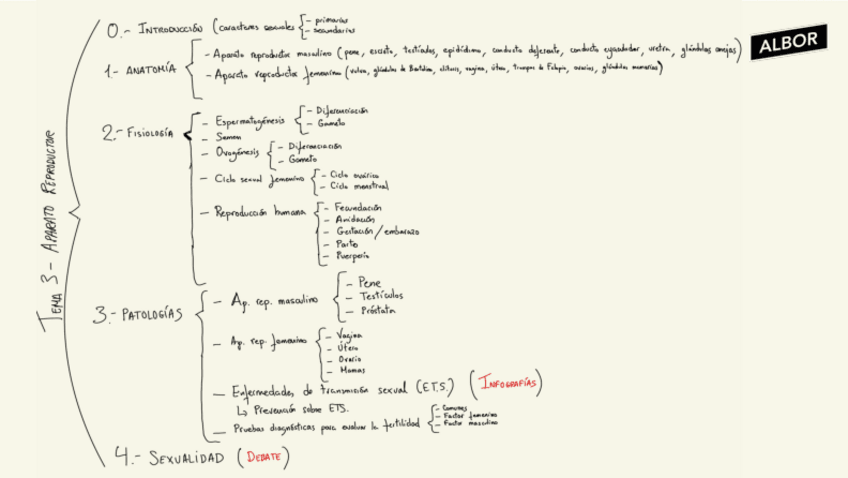 TEMA 3- APARATO REPRODUCTOR
0.- INTRODUCCIÓN (caracteres sexuales - primarios
- secundarios
ALBOR
1- ANATOMÍA
- Aparato reproductor masculino (pene, escroto, testículos, epidídimo, conducto deferente, conducto eyaculador, uretra, glándulas anejas)
- Aparato reproductor femenino (vulva, glándulas de Bartolino, clítoris, vagina, útero, trompas de Falopio, ovarios, glándulas mamarias)
2.- FISIOLOGÍA
- Espermatogénesis - Diferenciación
- Gameto
- Semen
- Ovogénesis - Diferenciación
- Gameto
- Ciclo sexual femenino - Ciclo ovárico
- Ciclo menstrual
- Reproducción humana - Fecundación
- Anidación
- Gestación / embarazo
- Parto
- Puerperio
3.- PATOLOGÍAS
- Ap. rep. masculino - Pene
- Testículos
- Próstata
- Ap. rep. femenino - Vagina
- Útero
- Ovario
- Mamas
- Enfermedades de transmisión sexual (E.T.S.) (INFOGRAFÍAS)
↳ Prevención sobre ETS.
- Pruebas diagnósticas para evaluar la fertilidad - Comunes
- Factor femenino
- Factor masculino
4.- SEXUALIDAD (DEBATE)